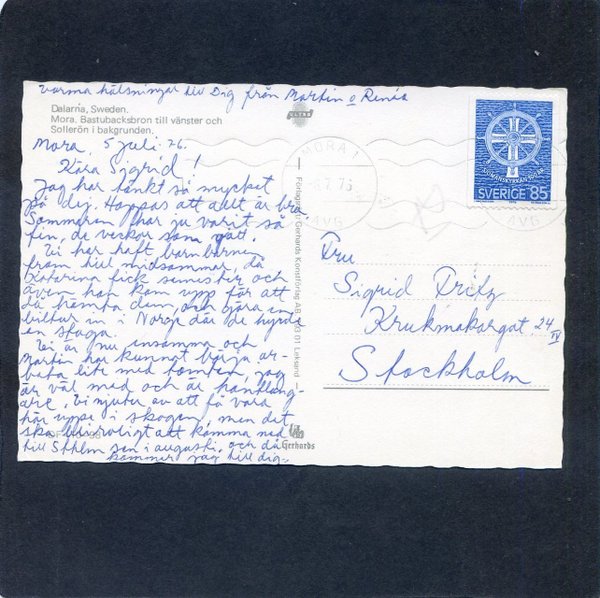 Varma hälsningar till Dig från Martin o Renia
Dalarna, Sweden.
Mora. Bastubacksbron till vänster och
Sollerön i bakgrunden.
Mora, 5 juli 76.
Kära Sigrid!
Jag har tänkt så mycket
på dej. Hoppas att allt är bra
Sommaren har ju varit så
fin, de veckor som gått.
Vi har haft barnbarnen
från till midsommar, då
Katarina fick semester och
även han kom upp för att
då hämta dem, och göra en
biltur in i Norge där de hyrde
en stuga.
Vi är nu ensamma och
Martin har kunnat börja ar-
beta lite med tomten, jag
är väl med och är handlang-
are. Vi njuter av att få vara
här uppe i skogen, men det
ska bli roligt att komma ned
till Sthlm sen i augusti, och då
kommer jag till dig.
ULTRA
Förlag: Gerhards Konstförlag AB, 793 01 Leksand
Gerhards
MORA 1
7.76
AVG
AVG
SVERIGE 85
Fru
Sigrid Fritz
Krukmakargat 24 IV
Stockholm